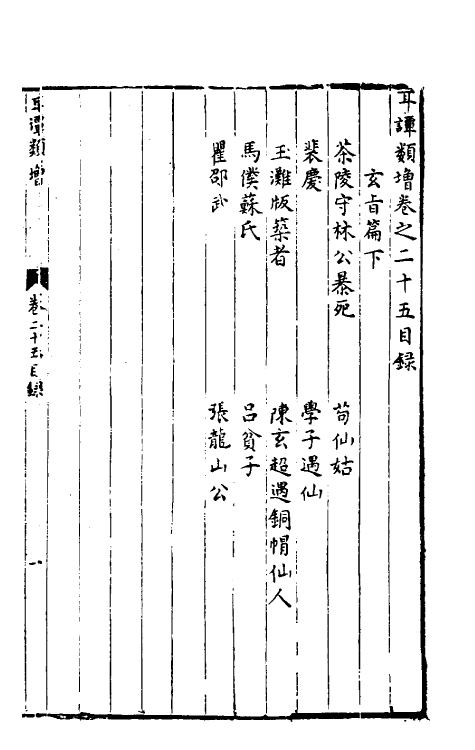 耳譚類增卷之二十五目錄
玄旨篇下
茶陵守林公暴死
荀仙姑
裴慶
學子遇仙
玉灘版築者
陳玄超遇銅帽仙人
馬僕蘇氏
呂貧子
瞿邵武
張龍山公
耳譚類增
卷二十五目錄
一